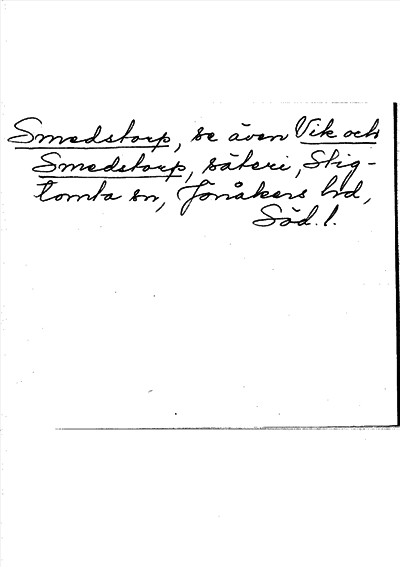 Smedstorp, se även Vik och
Smedstorp, säteri, Stig-
tomta sn, Jönåkers hd,
Söd. l.